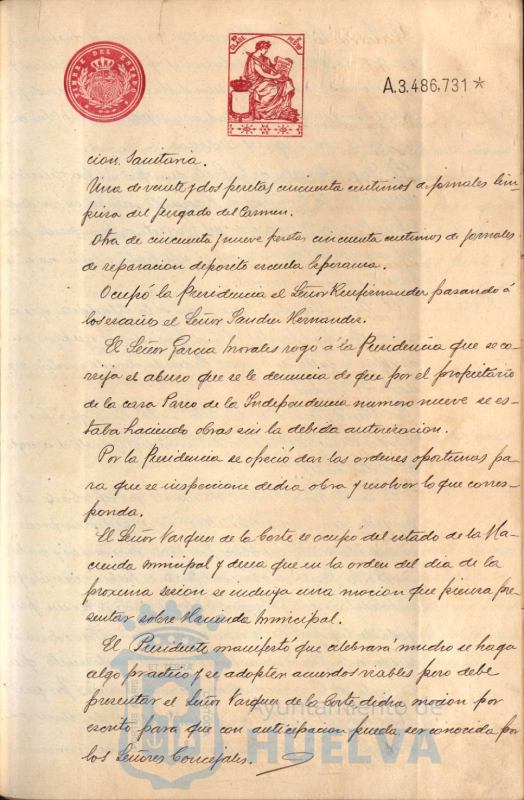 TIMBRE DEL ESTADO
A.3.486,731*
cion Sanitaria.
Una de veinte y dos pesetas cincuenta centimos de jornales lim-
pieza del juzgado del Carmen.
Otra de cincuenta y nueve pesetas cincuenta centimos de jornales
de reparacion deposito escuela Esperanza.
Ocupó la Presidencia el Señor pasando á
los escaños el Señor Sander Hernandez.
El Señor Garcia Morales rogó á la Presidencia que se co-
rrija el abuso que se le denuncia de que por el propietario
de la casa Paseo de la Independencia numero nueve se es-
taba haciendo obras sin la debida autorizacion.
Por la Presidencia se ofreció dar las ordenes oportunas pa
ra que se inspeccione dicha obra y resolver lo que corres-
ponda.
El Señor Vazquez de la Corte se ocupó del estado de la Ha-
cienda Municipal y desea que en la orden del dia de la
proxima sesion se incluya una mocion que piensa pre-
sentar sobre Hacienda Municipal.
El Presidente manifestó que celebrará mucho se haga
algo practico y se adopten acuerdos viables pero debe
presentar el Señor Vazquez de la Corte dicha mocion por
escrito para que con anticipacion pueda ser conocida por
los Señores Concejales.
Ayuntamiento de
HUELVA